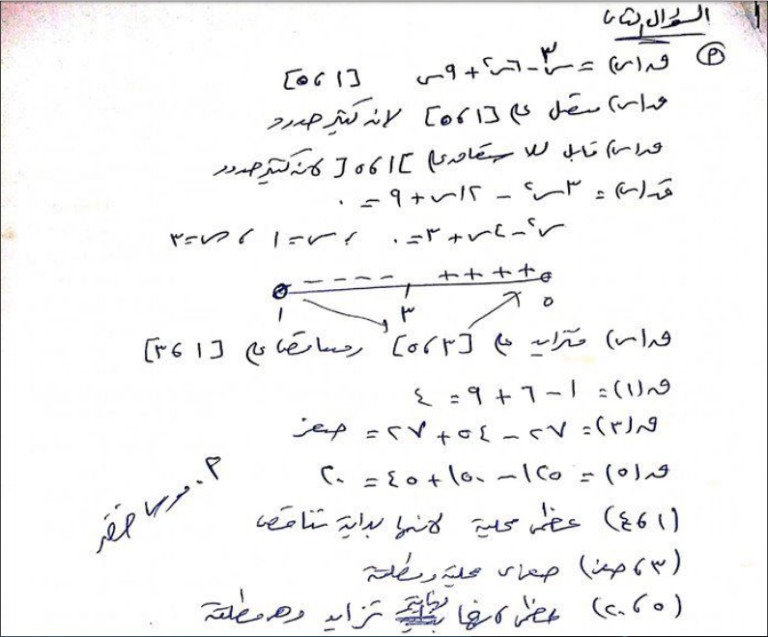 السؤال الثاني
(P) ق(س) = س٣ - ٦س٢ + ٩س [٥،١]
ق(س) متصل على [٥،١] لأنه كثير حدود
ق(س) قابل للاشتقاق على ]٥،١[ لأنه كثير حدود
قَ(س) = ٣س٢ - ١٢س + ٩ = ٠
س٢ - ٤س + ٣ = ٠ ، س = ١ ، س = ٣
- - - - + + + +
١ ٣ ٥
ق(س) متزايد على [٥،٣] ومتناقص على [٣،١]
ق(١) = ١ - ٦ + ٩ = ٤
ق(٣) = ٢٧ - ٥٤ + ٢٧ = صفر
ق(٥) = ١٢٥ - ١٥٠ + ٤٥ = ٢٠
(٤،١) عظمى محلية لأنها بداية تناقص
(٣،صفر) صغرى محلية ومطلقة
(٢٠،٥) عظمى لأنها نهاية تزايد وهي مطلقة